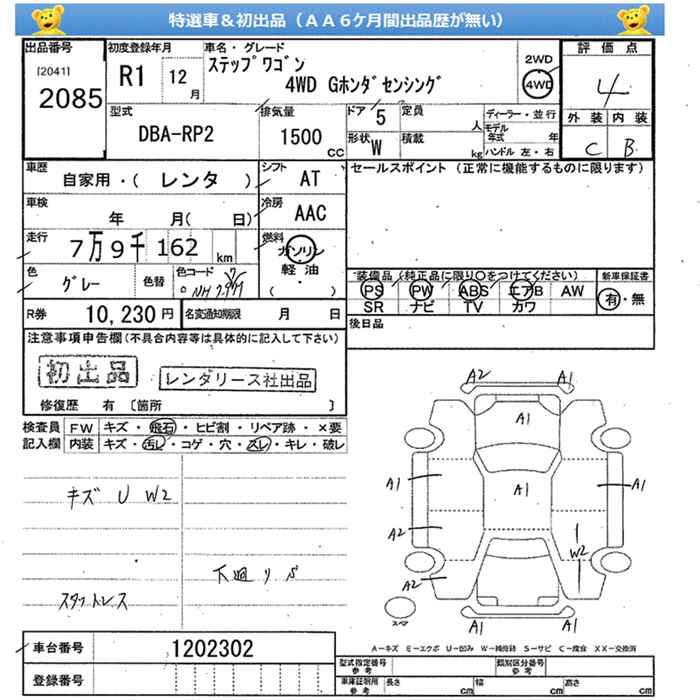 特選車＆初出品（ＡＡ６ケ月間出品歴が無い）
出品番号 [2041] 2085
初度登録年月 R1 12月
車名・グレード ステップワゴン
4WD Gホンダセンシング
2WD
4WD
評価点 4
外装 内装
C B
型式 DBA-RP2
排気量 1500 CC
ドア 5
形状 W
定員 人
積載 kg
ディーラー・並行
モデル年式 年
ハンドル 左・右
車歴 自家用・( レンタ )
シフト AT
セールスポイント (正常に機能するものに限ります)
車検 年 月( 日)
冷房 AAC
走行 7万9千162 km
燃料 ガソリン
軽油・
( )
色 グレー
色替
色コード
装備品 (純正品に限り○をつけてください)
PS PW ABS エアB AW
SR ナビ TV カワ
新車保証書
有・無
R券 10,230円
名変通知期限 月 日
後日品
注意事項申告欄(不具合内容等は具体的に記入して下さい)
初出品
レンタリース社出品
修復歴 有 〔箇所 〕
検査員記入欄
FW キズ・飛石・ヒビ割・リペア跡・×要
内装 キズ・汚レ・コゲ・穴・スレ・キレ・破レ
キズ U W2
下廻りS
スタットレス
A2 A1
A1
A1 A1 A1
A2
W2
A2
スペア
A1 A1
A－キズ E－エクボ U－凹ミ W－補修跡 S－サビ C－腐食 XX－交換済
車台番号 1202302
登録番号
型式指定番号 参考
類別区分番号 参考
車庫証明用 参考 長さ cm 幅 cm 高さ cm